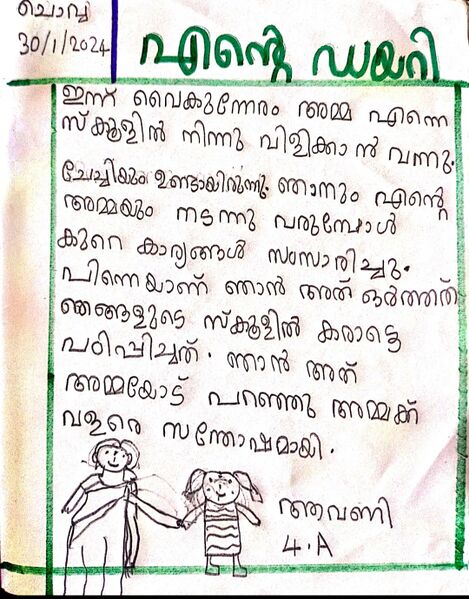 ചൊവ്വ
30/1/2024
എൻ്റെ ഡയറി
ഇന്ന് വൈകുന്നേരം അമ്മ എന്നെ
സ്കൂളിൽ നിന്നു വിളിക്കാൻ വന്നു.
ചേച്ചിയും ഉണ്ടായിരുന്നു. ഞാനും എൻ്റെ
അമ്മയും നടന്നു വരുമ്പോൾ
കുറെ കാര്യങ്ങൾ സംസാരിച്ചു.
പിന്നെയാണ് ഞാൻ അത് ഓർത്തത്
ഞങ്ങളുടെ സ്കൂളിൽ കരാട്ടെ
പഠിപ്പിച്ചത്. ഞാൻ അത്
അമ്മയോട് പറഞ്ഞു അമ്മക്ക്
വളരെ സന്തോഷമായി.
ആവണി
4.A